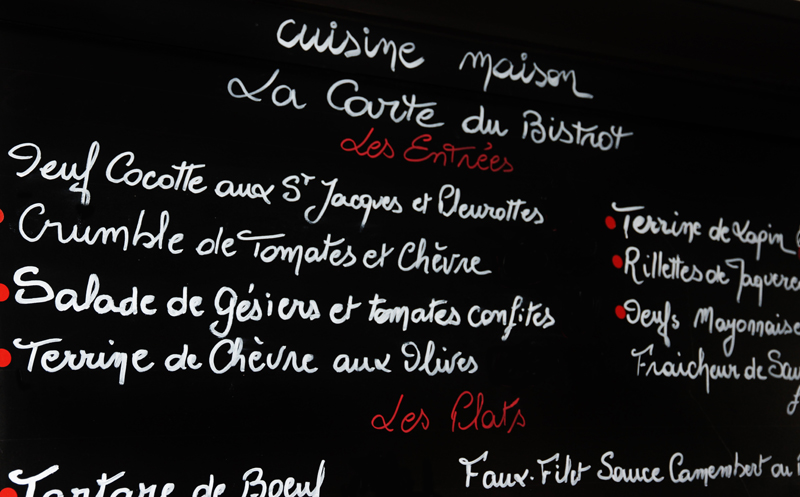 cuisine maison
La Carte du Bistrot
Les Entrées
Oeuf Cocotte aux St Jacques et Pleurottes
Crumble de Tomates et Chèvre
Salade de Gésiers et tomates confites
Terrine de Chèvre aux Olives
Terrine de Lapin
Rillettes de
Oeufs Mayonnaise
Fraicheur de
Les Plats
Tartare de Boeuf
Faux-Filet Sauce Camembert ou